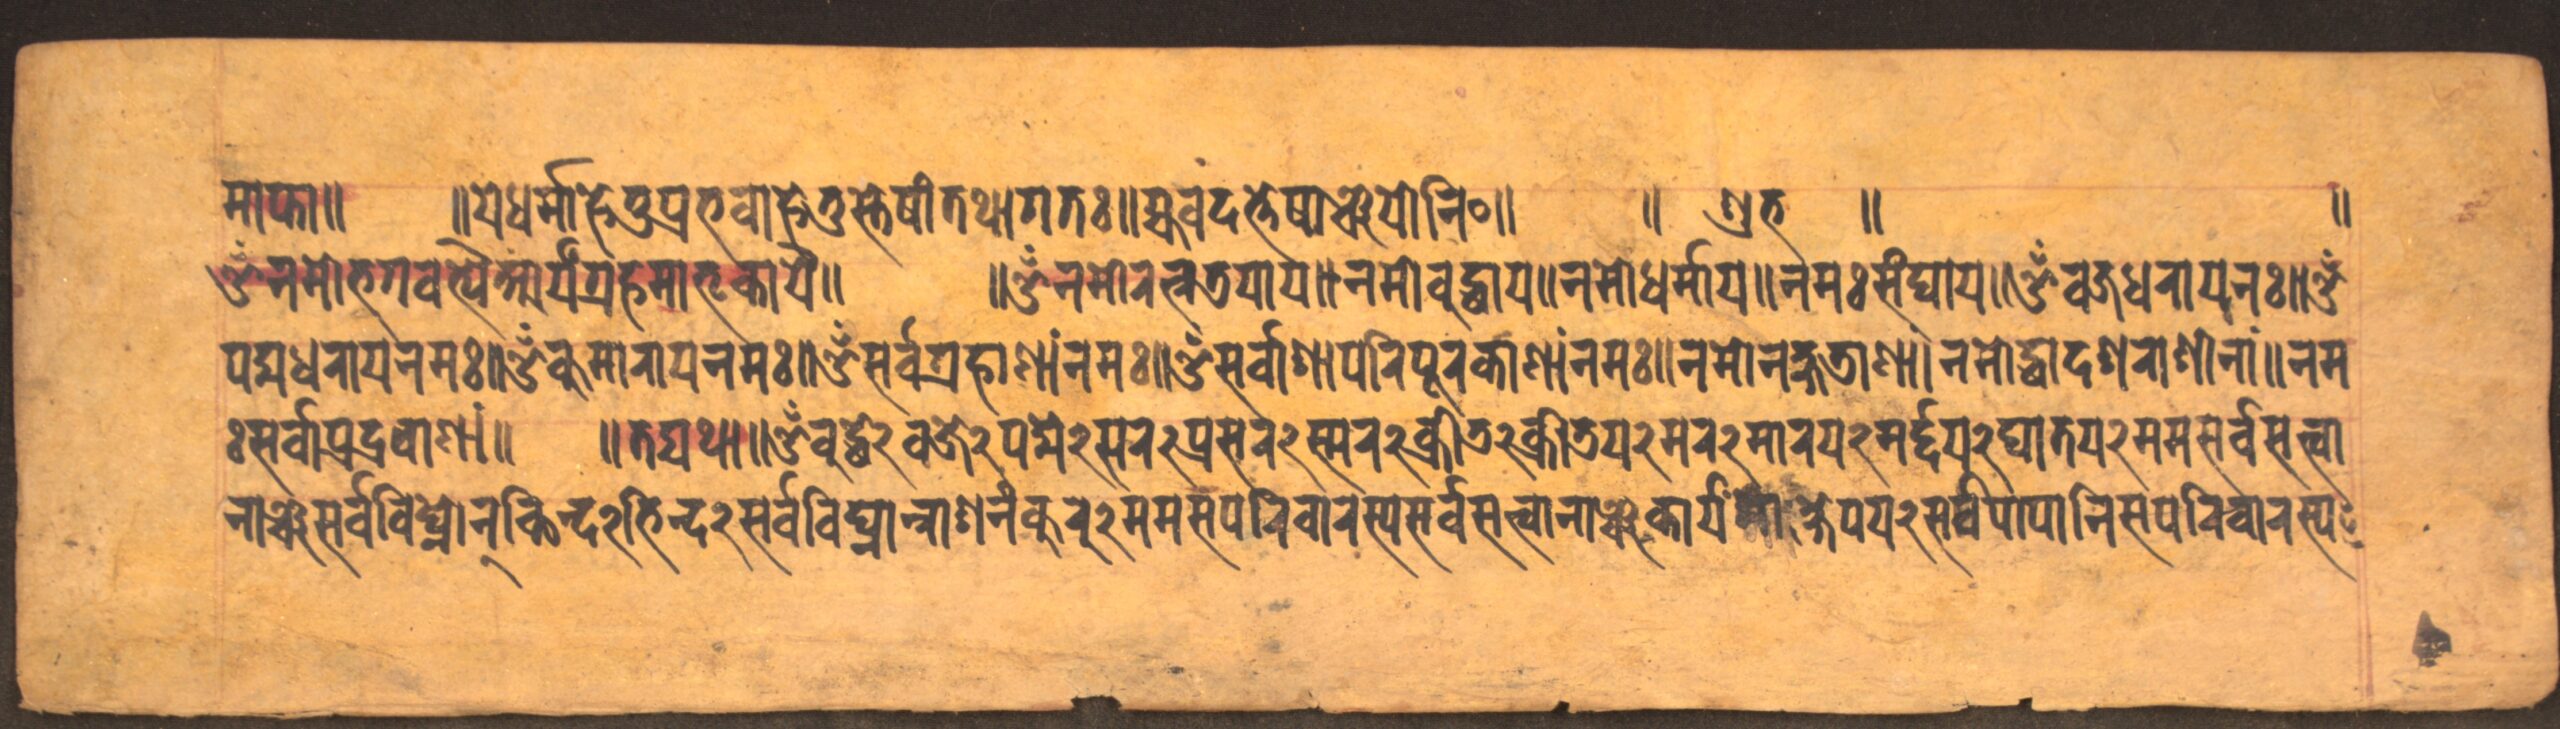 माप्ता॥ ॥येधर्माहेतुप्रभवाहेतुस्तेषांतथागतः॥ह्यवदत्तेषाञ्चयोनि०॥ ॥ शुभ ॥ ॥
ॐनमोभगवत्यैआर्यग्रहमातृकायै॥ ॥ॐनमोरत्नत्रयाय॥नमोबुद्धाय॥नमोधर्माय॥नमःसंघाय॥ॐवज्रधरायनः॥ॐ
पद्मधरायनमः॥ॐकुमारायनमः॥ॐसर्वग्रहाणांनमः॥ॐसर्वाशापरिपूरकाणांनमः॥नमोनक्षत्राणां।नमोद्वादशराशीनां॥नम
ःसर्वोपद्रवाणां॥ ॥तद्यथा॥ॐबुद्धे२वज्रे२पद्मे२सर२प्रसर२स्मर२क्रीड२क्रीडय२मर२मारय२मर्द्दय२घातय२ममसर्वसत्त्वा
नाञ्चसर्वविघ्नान्छिन्द२भिन्द२सर्वविघ्नान्नाशनंकुरु२ममसपरिवारस्यसर्वसत्त्वानाञ्चकार्यं क्षेपय२सर्वपापानिसपरिवारस्य